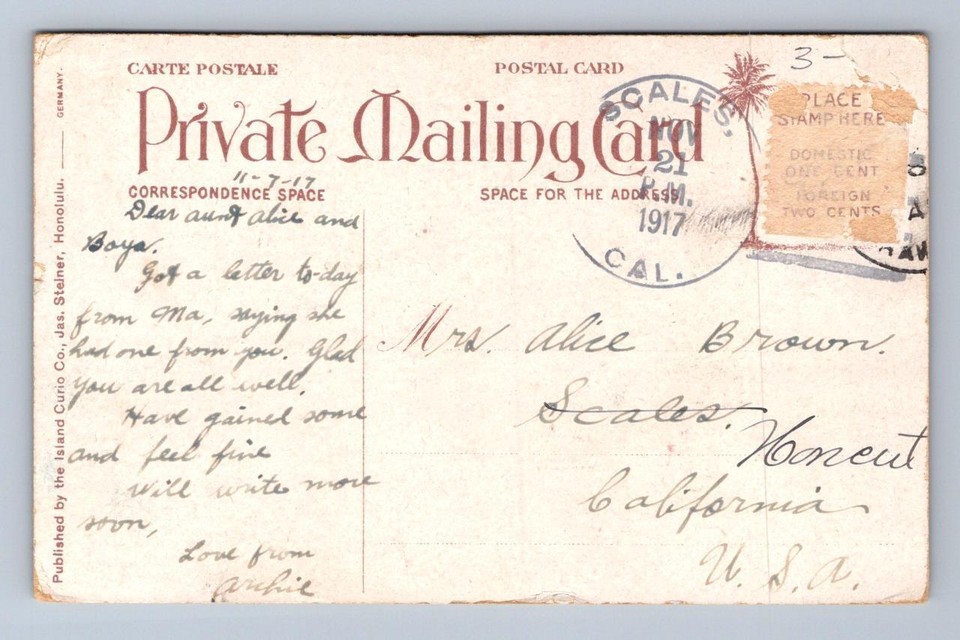 CARTE POSTALE
POSTAL CARD
3-
Private Mailing Card
PLACE
STAMP HERE
DOMESTIC
ONE CENT
FOREIGN
TWO CENTS
SCALES,
NOV
21
P.M.
1917
CAL.
11-7-17
CORRESPONDENCE SPACE
SPACE FOR THE ADDRESS.
Dear aunt alice and
Boys.
Got a letter to-day
from Ma, saying she
had one from you. Glad
you are all well.
Have gained some
and feel fine
Will write more
soon,
Love from
Archie
Mrs. Alice Brown.
Scales.
Honcut
California
U. S. A.
Published by the Island Curio Co., Jas. Steiner, Honolulu.
GERMANY.